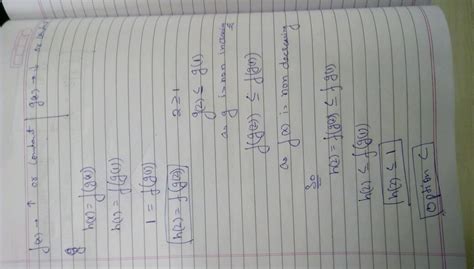 f(x) → ↑ or constant | g(x) → ↓
h(x) = f(g(x))
h(1) = f(g(1))
1 = f(g(1))
h(2) = f(g(2))
2 ≥ 1
g(2) ≤ g(1)
as g is non increasing
f(g(2)) ≤ f(g(1))
as f(x) is non decreasing
So
h(2) = f(g(2)) ≤ f(g(1))
h(2) ≤ f(g(1))
h(2) ≤ 1
Option C